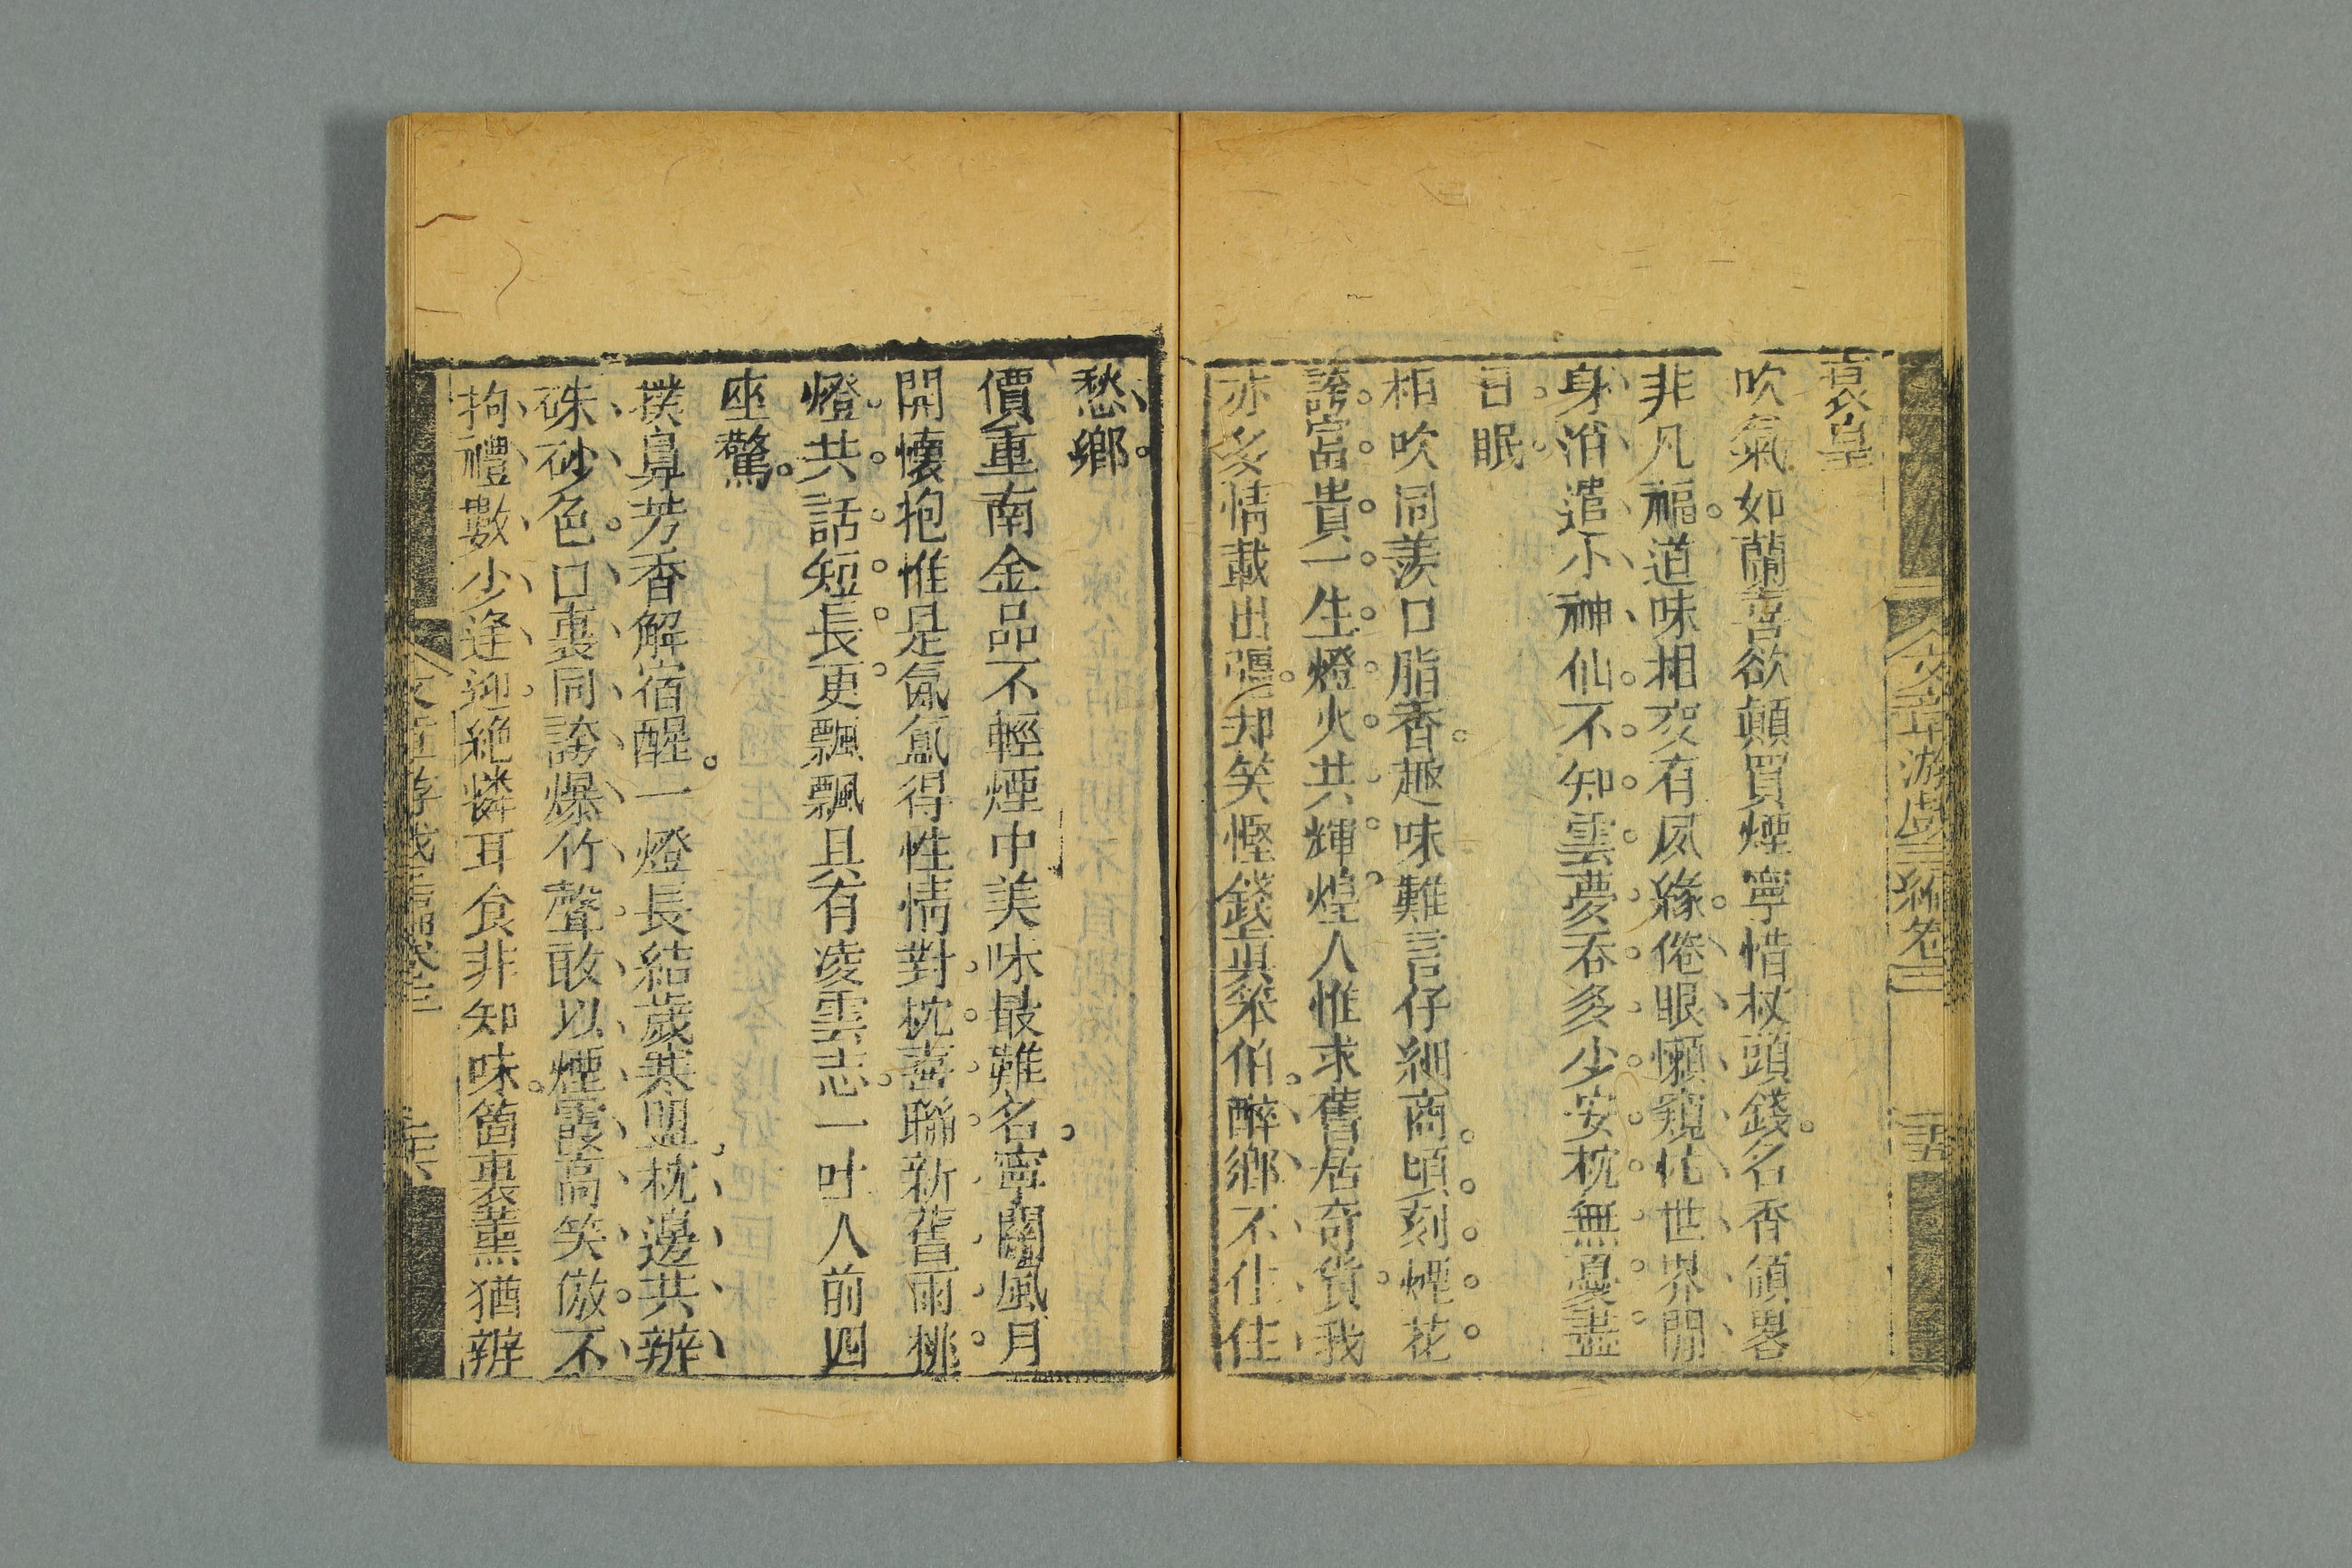 袁皇
吹氣如蘭喜欲顛買煙寧惜杖頭錢名香領畧
非凡福道味相交有夙緣倦眼懶窺忙世界閒
身消遣小神仙不知雲夢吞多少安枕無憂盡
日眠
相吹同羨口脂香趣味難言仔細商頃刻煙花
誇富貴一生燈火共輝煌人惟求舊居奇貨我
亦多情載出疆却笑慳錢真笨伯醉鄉不住住
愁鄉
價重南金品不輕煙中美味最難名寧關風月
開懷抱惟是氤氳得性情對枕喜聯新舊雨挑
燈共話短長更飄飄具有凌雲志一吐人前四
座驚
撲鼻芳香解宿酲一燈長結歲寒盟枕邊共辨
硃砂色口裏同誇爆竹聲敢以煙霞高笑傲不
拘禮數少逢迎絕憐耳食非知味箇裏薰蕕辨
文章游戲三編卷三
三五
文章游戲三編卷三
三六